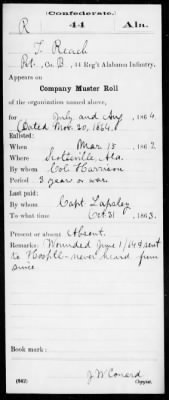 (Confederate.)
R 44 Ala.
T. Reach
Pvt., Co. B, 44 Reg't Alabama Infantry.
Appears on
Company Muster Roll
of the organization named above,
for July and Aug, 1864.
(Dated Nov. 20, 1864.
Enlisted:
When Mar 15, 1862.
Where Scottsville, Ala.
By whom Col. Harrison
Period 3 year or war.
Last paid:
By whom Capt. Lapsley
To what time Oct 31, 1863.
Present or absent Absent.
Remarks: Wounded June 1/64 & sent
to Hosptl - never heard from
since
Book mark:
(642) J W Conard
Copyist.